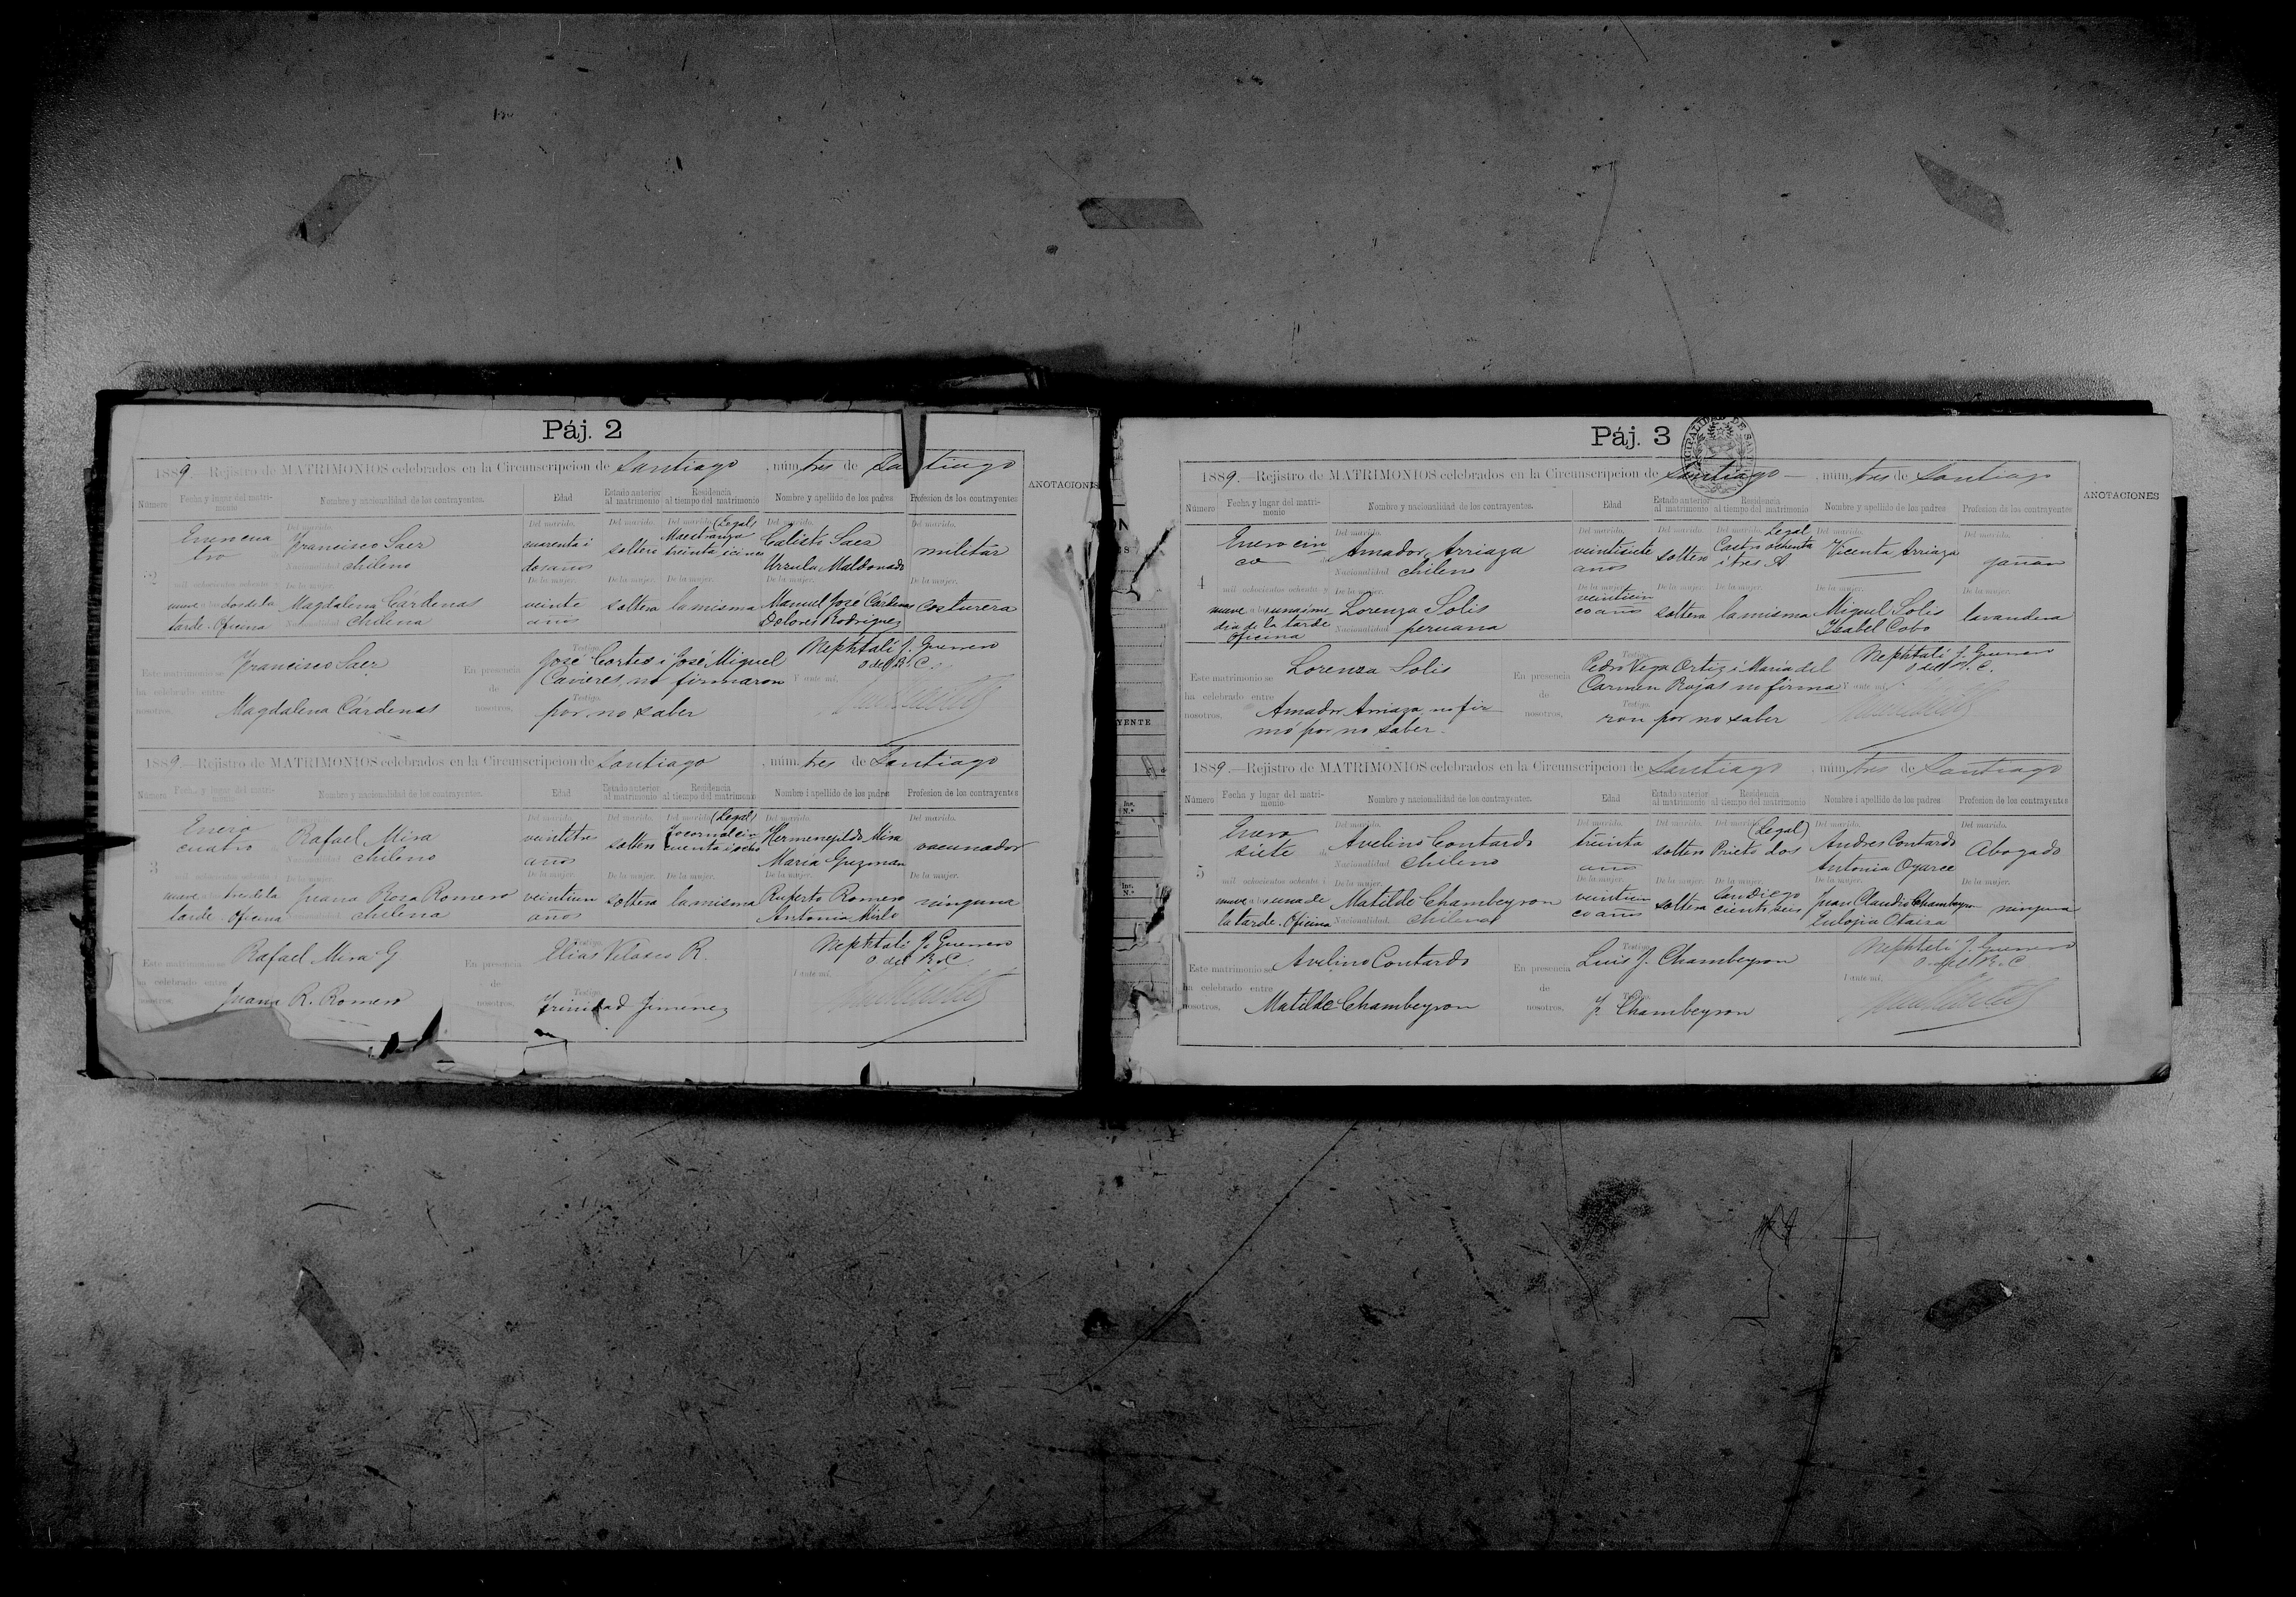 Páj. 2
1889.—Rejistro de MATRIMONIOS celebrados en la Circunscripcion de Santiago, núm. tres de Santiago
ANOTACIONES
Número Fecha y lugar del matrimonio Nombre y nacionalidad de los contrayentes. Edad Estado anterior al matrimonio Residencia al tiempo del matrimonio Nombre y apellido de los padres Profesion de los contrayentes
Del marido. Del marido. Del marido. Del marido (Legal) Del marido. Del marido.
Enero cua
tro
Francisco Saez
Nacionalidad chileno
cuarenta i
dos años
soltero
Maestranza
treinta i
Calisto Saez
Ursula Maldonado
militar
2
mil ochocientos ochenta y De la mujer. De la mujer. De la mujer. De la mujer. De la mujer. De la mujer.
nueve a las dos de la
tarde. Oficina
Magdalena Cárdenas
Nacionalidad chilena
veinte
años
soltera
la misma
Manuel José Cárdenas
Dolores Rodriguez
Costurera
Este matrimonio se
ha celebrado entre
nosotros,
Francisco Saez
Magdalena Cárdenas
En presencia
de
nosotros,
Testigo.
José Cortes i José Miguel
Cavieres, no firmaron
Testigo.
por no saber
Nephtalí J. Guerrero
O del R. C.
Y ante mí,
1889.—Rejistro de MATRIMONIOS celebrados en la Circunscripcion de Santiago, núm. tres de Santiago
Número Fecha y lugar del matrimonio Nombre y nacionalidad de los contrayentes. Edad Estado anterior al matrimonio Residencia al tiempo del matrimonio Nombre i apellido de los padres Profesion de los contrayentes
Del marido. Del marido. Del marido (Legal) Del marido. Del marido.
Enero
cuatro
Rafael Mira
Nacionalidad chileno
veintitres
años
soltero
Tocornal cin
cuenta i ocho
Hermenejildo Mira
María Guzman
vacunador
3
mil ochocientos ochenta i De la mujer. De la mujer. De la mujer. De la mujer. De la mujer. De la mujer.
nueve a las tres de la
tarde. Oficina
Juana Rosa Romero
Nacionalidad chilena
veintiun
años
soltera
la misma
Ruperto Romero
Antonia Mirlo
ninguna
Este matrimonio se
ha celebrado entre
nosotros,
Rafael Mira G
Juana R. Romero
En presencia
de
nosotros,
Testigo.
Elias Velasco R.
Testigo.
Trinidad Jimenez
Nephtalí J. Guerrero
O del R. C
I ante mí,
Páj. 3
1889.—Rejistro de MATRIMONIOS celebrados en la Circunscripcion de Santiago, núm. tres de Santiago
ANOTACIONES
Número Fecha y lugar del matrimonio Nombre y nacionalidad de los contrayentes. Edad Estado anterior al matrimonio Residencia al tiempo del matrimonio Nombre y apellido de los padres Profesion de los contrayentes
Del marido. Del marido. Del marido. Del marido. Legal Del marido. Del marido.
Enero cin
co
Amador Arriaza
Nacionalidad chileno
veintisiete
años
soltero
Castro ochenta
i tres A
Vicenta Arriaza
gañan
4
mil ochocientos ochenta y De la mujer. De la mujer. De la mujer. De la mujer. De la mujer. De la mujer.
nueve a la una i me
dia de la tarde
Oficina
Lorenza Solis
Nacionalidad peruana
veinticin
co años
soltera
la misma
Miguel Solis
Isabel Cobo
lavandera
Este matrimonio se
ha celebrado entre
nosotros,
Lorenza Solis
Amador Arriaza, no fir
mó por no saber.
En presencia
de
nosotros,
Testigo.
Pedro Vega Ortiz i María del
Carmen Rojas no firma
Testigo.
ron por no saber
Nephtalí J. Guerrero
O del R. C.
Y ante mí,
1889.—Rejistro de MATRIMONIOS celebrados en la Circunscripcion de Santiago, núm. tres de Santiago
Número Fecha y lugar del matrimonio Nombre y nacionalidad de los contrayentes. Edad Estado anterior al matrimonio Residencia al tiempo del matrimonio Nombre i apellido de los padres Profesion de los contrayentes
Del marido. Del marido. Del marido. Del marido (Legal) Del marido. Del marido.
Enero
siete
Avelino Contardo
Nacionalidad chileno
treinta
años
soltero
Prieto dos
Andres Contardo
Antonia Oyarce
Abogado
5
mil ochocientos ochenta i De la mujer. De la mujer. De la mujer. De la mujer. De la mujer. De la mujer.
nueve a la una de
la tarde. Oficina
Matilde Chambeyron
Nacionalidad chilena
veinticin
co años
soltera
San Diego
ciento seis
Juan Claudio Chambeyron
Eulojia Otaiza
ninguna
Este matrimonio se
ha celebrado entre
nosotros,
Avelino Contardo
Matilde Chambeyron
En presencia
de
nosotros,
Testigo.
Luis J. Chambeyron
J. Chambeyron
Nephtalí J. Guerrero
O. del R. C
I ante mí,